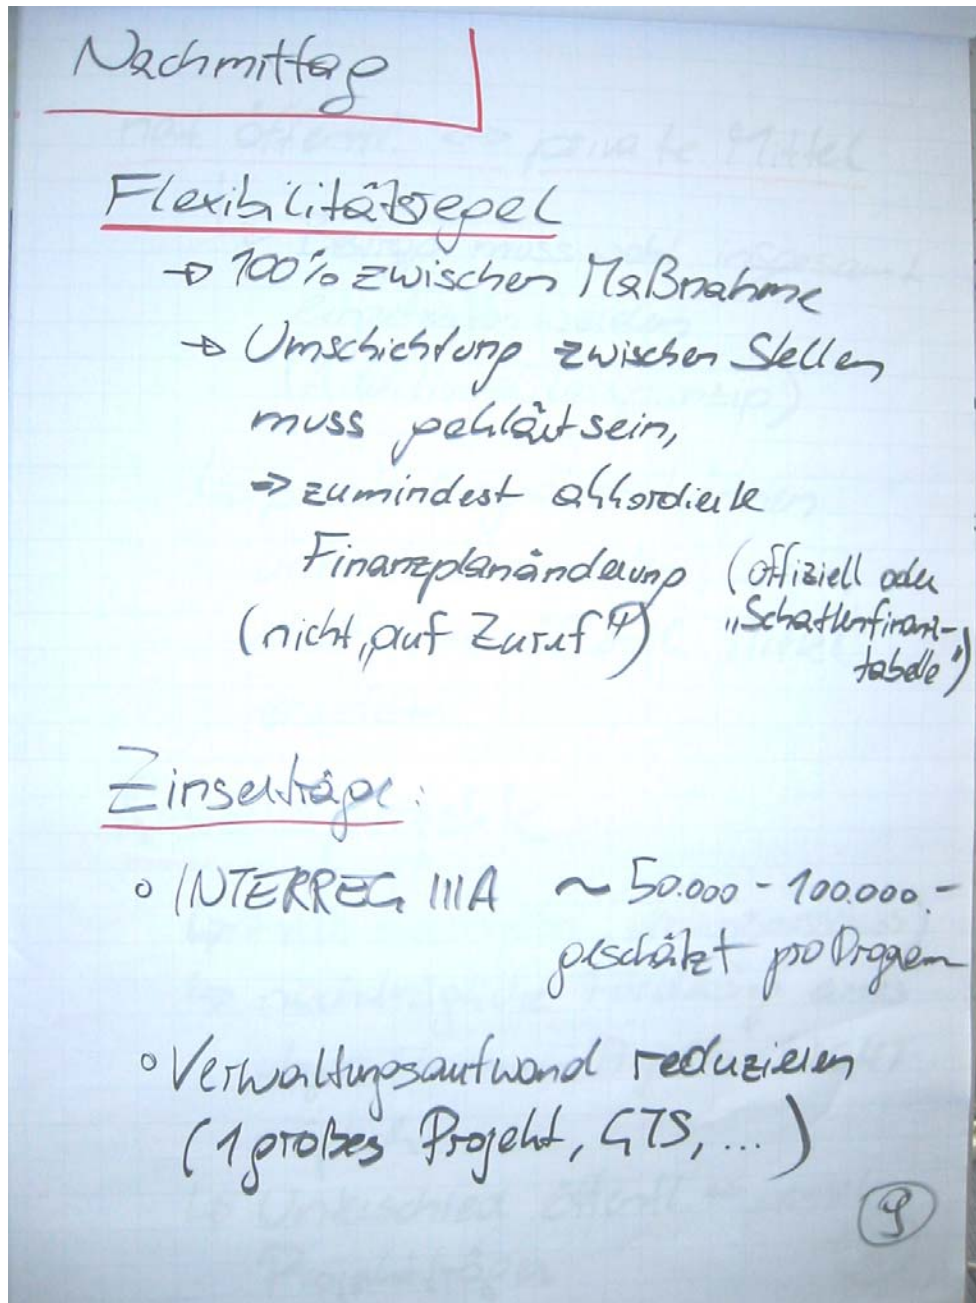 Nachmittag
Flexibilitätsregel
→ 100% zwischen Maßnahme
→ Umschichtung zwischen Stellen
muss geklärt sein,
→ zumindest akkordierte
Finanzplanänderung (offiziell oder
(nicht „auf Zuruf“) „Schattenfinanz-
tabelle“)
Zinserträge:
o INTERREG IIIA ~ 50.000 - 100.000,-
geschätzt pro Programm
o Verwaltungsaufwand reduzieren
(1 großes Projekt, GTS, ...)
9